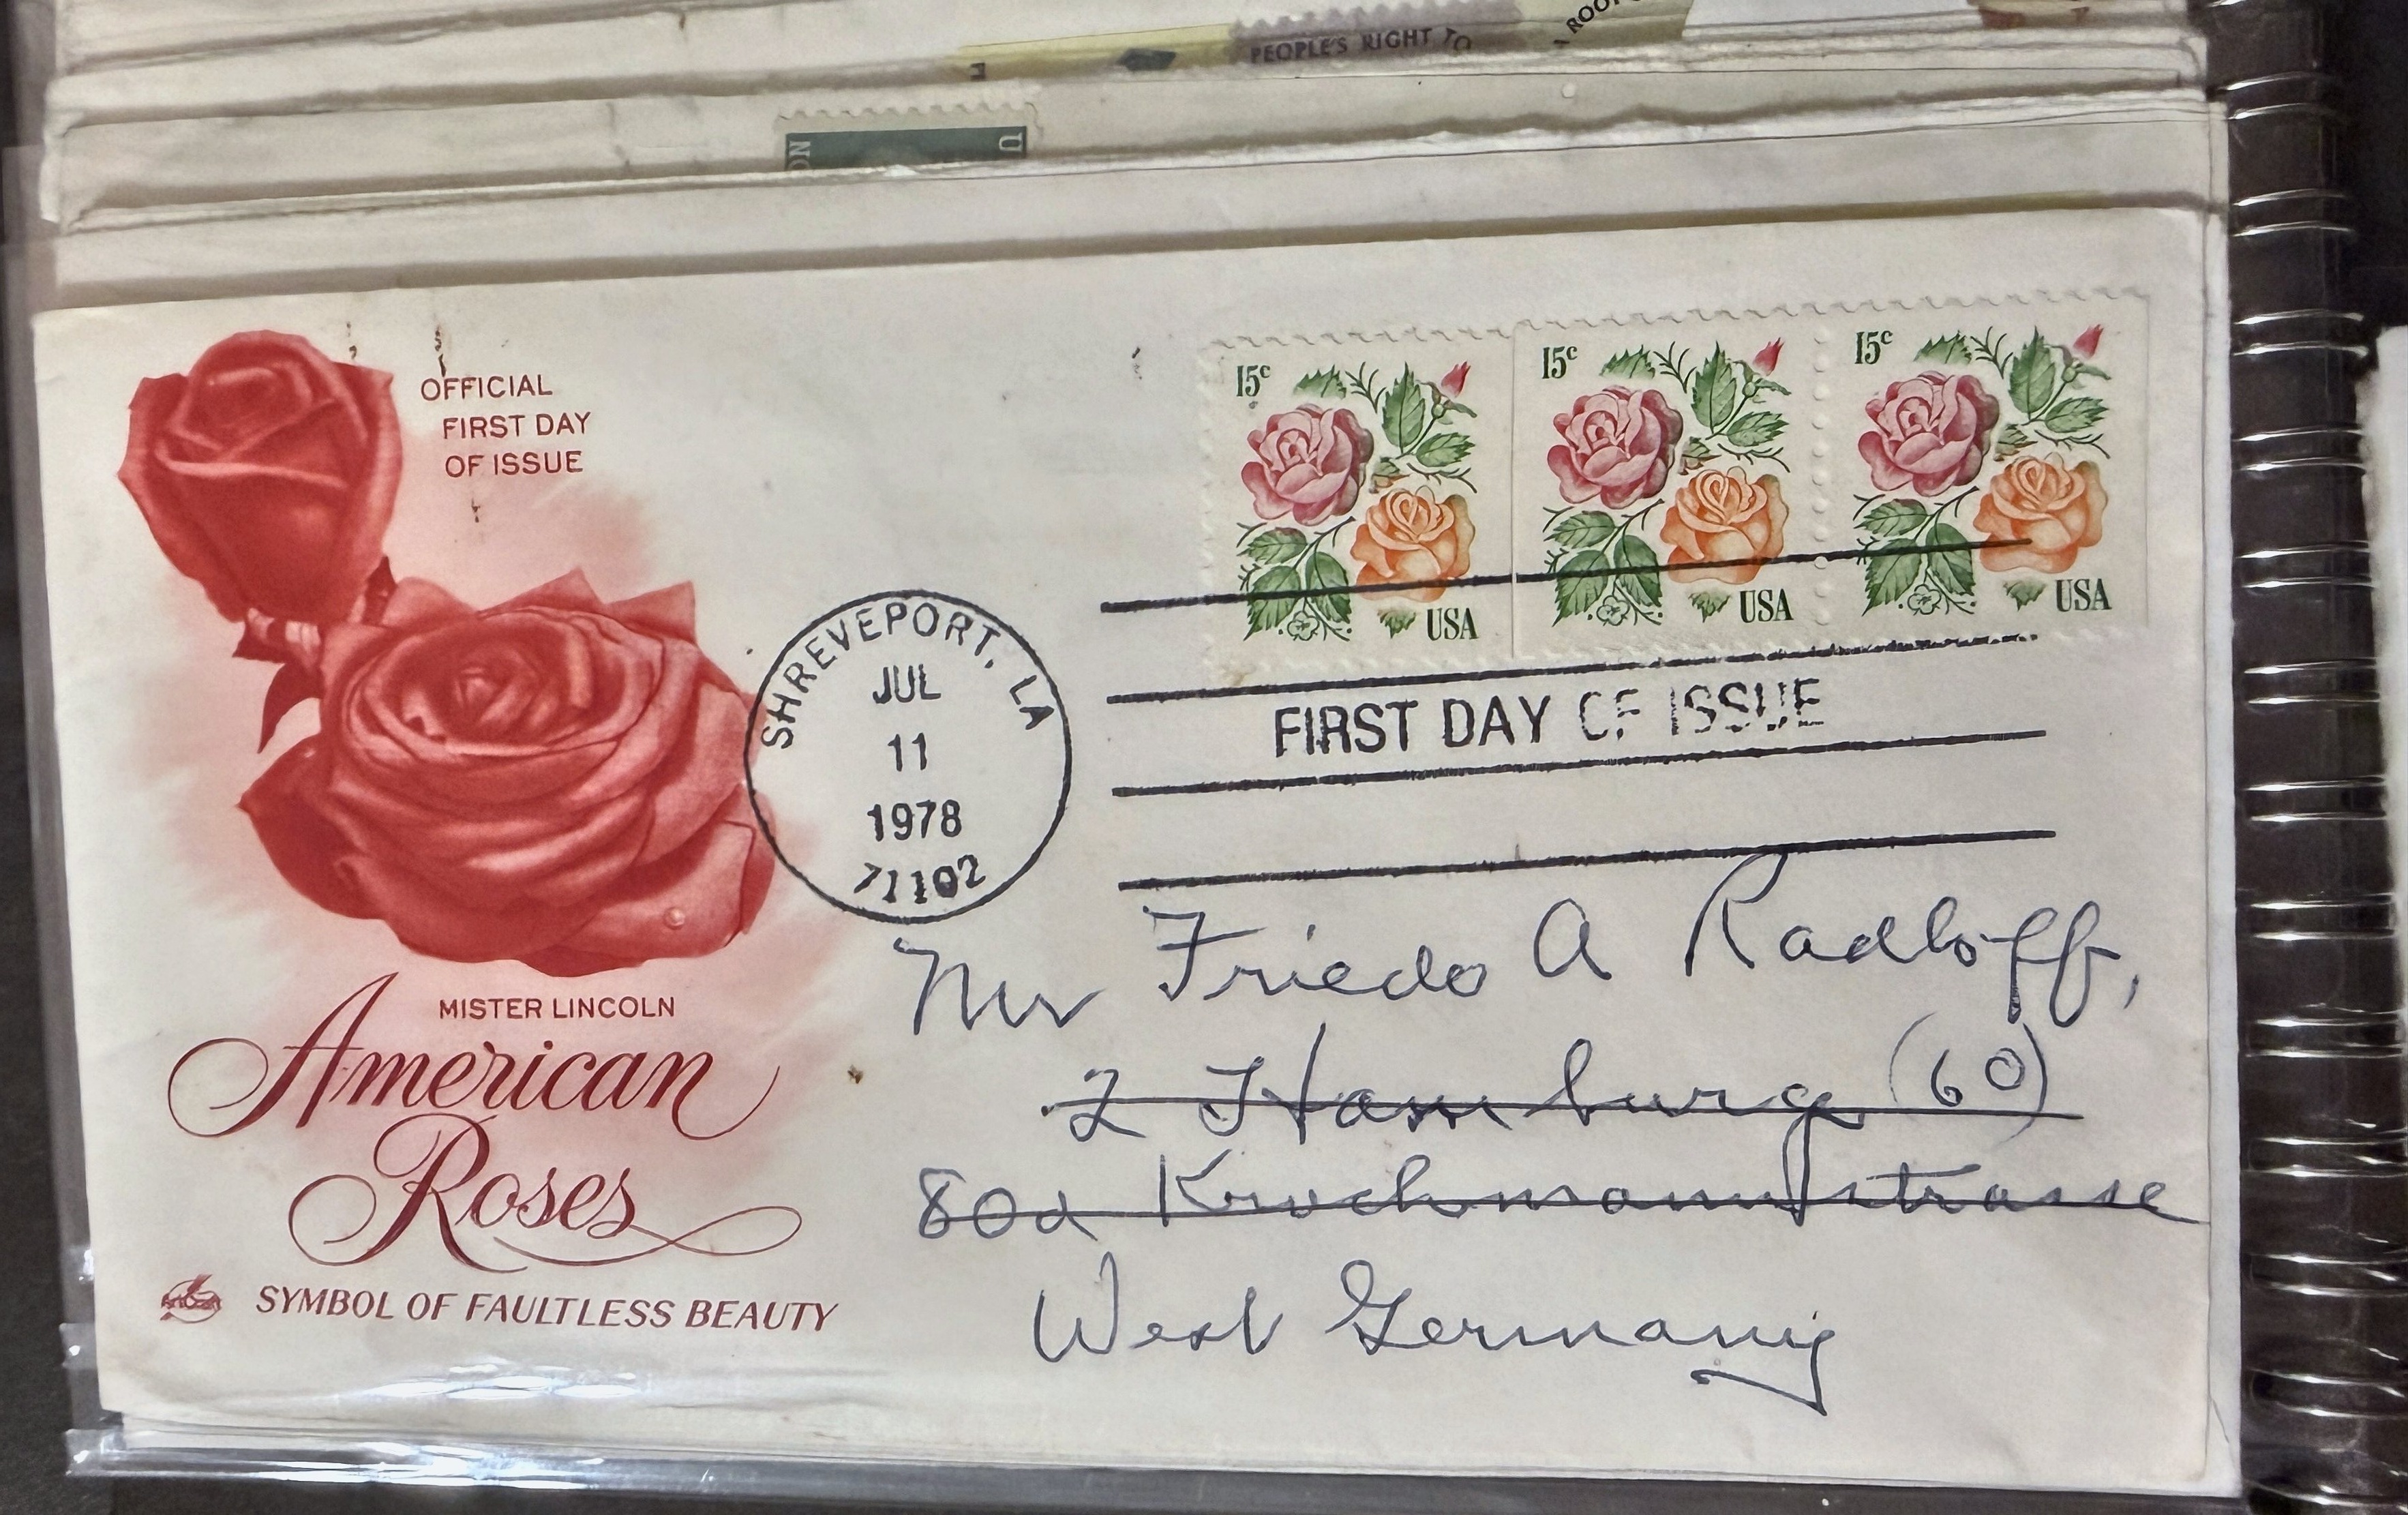 PEOPLE'S RIGHT TO
A ROO
ON U
OFFICIAL
FIRST DAY
OF ISSUE
15c 15c 15c
USA USA USA
SHREVEPORT, LA
JUL
11
1978
71102
FIRST DAY OF ISSUE
MISTER LINCOLN
American
Roses
SYMBOL OF FAULTLESS BEAUTY
Mr Friedo A Radloff,
2 Hamburg (60)
80a
West Germany